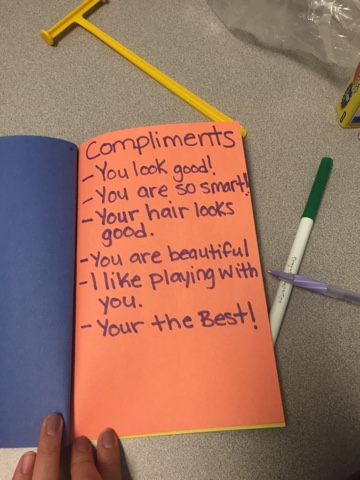 Compliments
- You look good!
- You are so smart!
- Your hair looks
good.
- You are beautiful
- I like playing with
you.
- Your the Best!